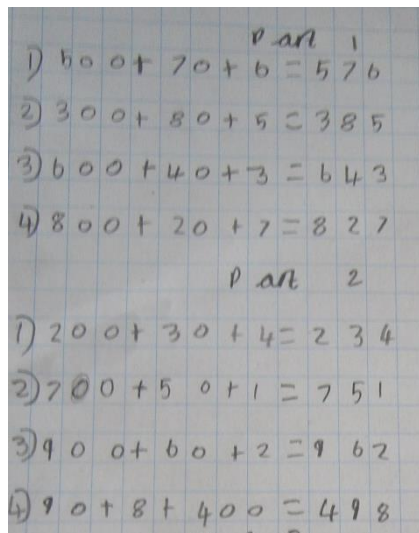 Part 1
1) 500+ 70+ 6 = 576
2) 300+ 80+ 5 = 385
3) 600 +40+3 = 643
4) 800 + 20 +7= 827
Part 2
1) 200+ 30 +4= 234
2) 700 +50+1 = 751
3) 900+ 60 +2= 962
4) 90+8+ 400 = 498